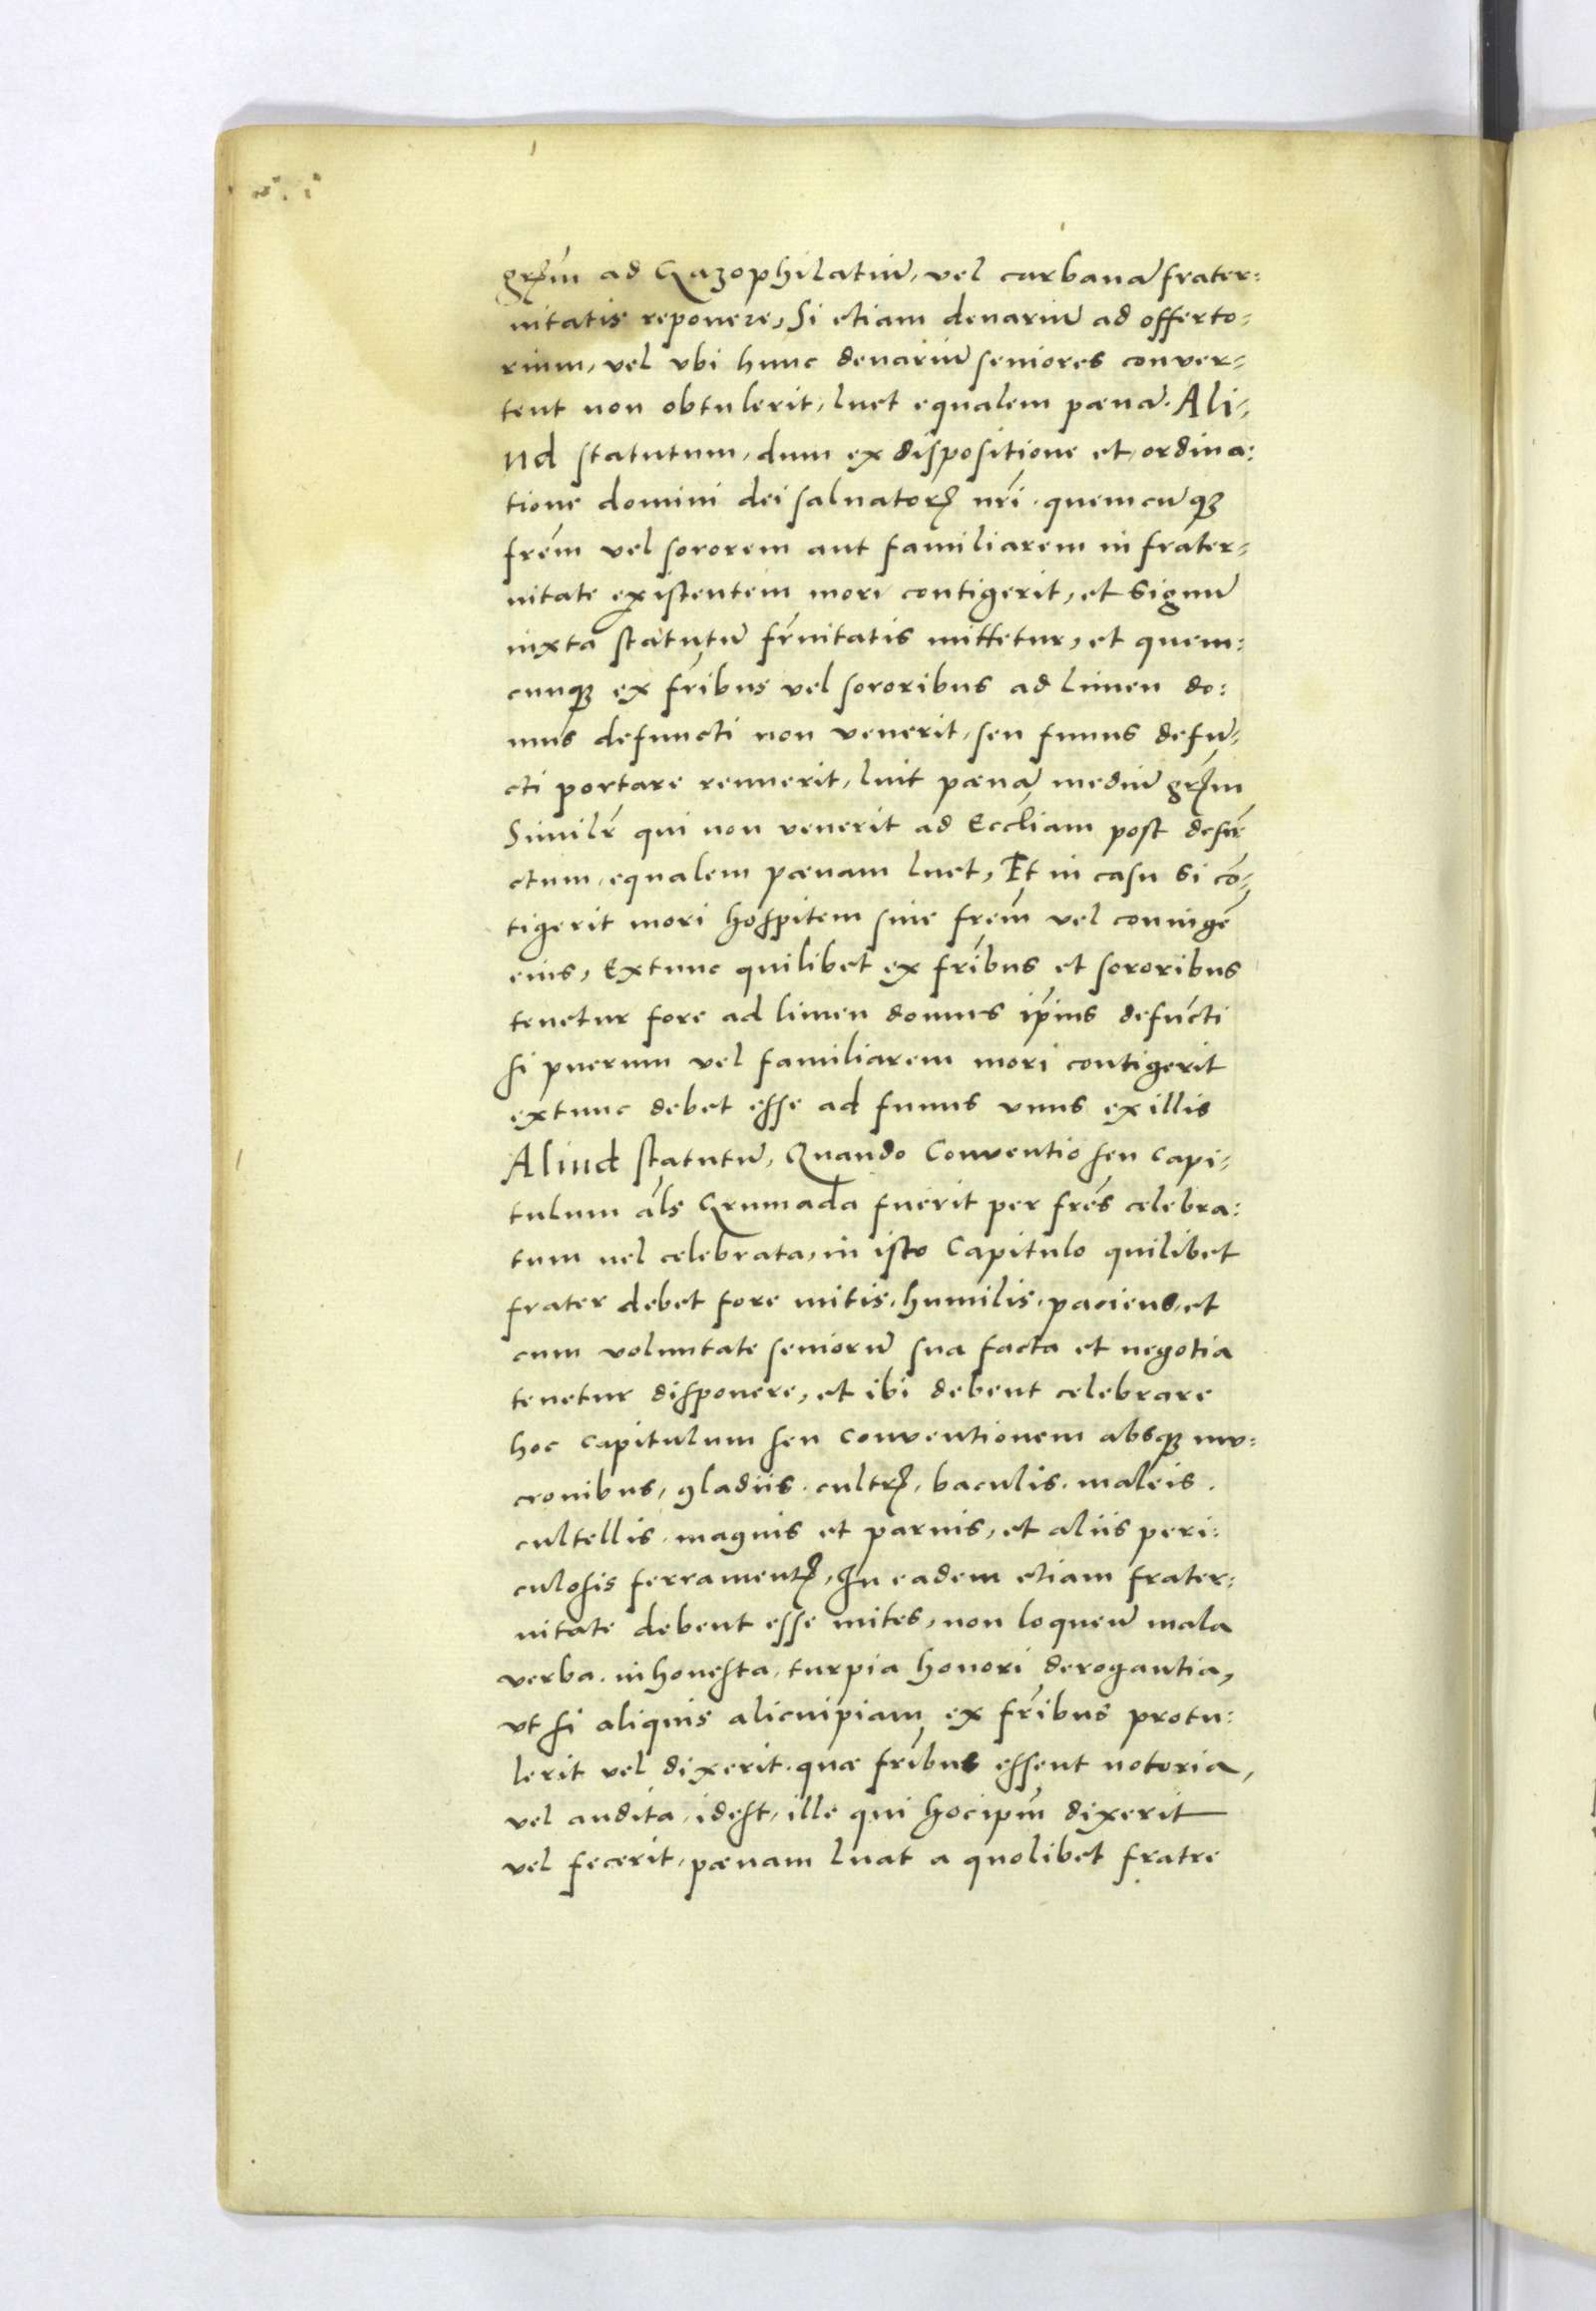 gr̃m ad Gazophilatiū, vel carbanā frater:
nitatis reponere, Si etiam denariū ad offerto:
rium, vel vbi hunc denariū seniores conver:
tent non obtulerit, luet equalem pœnā. Ali:
ud statutum, dum ex dispositione et ordina:
tione domini dei saluatorꝭ nr̃i. quemcūqꝫ
frẽm vel sororem aut familiarem in frater:
nitate existentem mori contigerit, et signū
iuxta statutū fr̃nitatis mittetur, et quem:
cunqꝫ ex fr̃ibus vel sororibus ad limen do:
mus defuncti non venerit, seu funus defū:
cti portare rennerit, luit pœnā mediū gr̃m
Similr̃ qui non venerit ad Eccl̃iam post defũ
ctum, equalem pœnam luet, Et in casu si cō:
tigerit mori hospitem siue frẽm vel coniugẽ
eius, Extunc quilibet ex fr̃ibus et sororibus
tenetur fore ad limen domus ip̃ius defũcti
si puerum vel familiarem mori contigerit
extunc debet esse ad funus vnus ex illis
Aliud statutū, Quando Conventio seu Capi:
tulum al̃s Grumada fuerit per frẽs celebra:
tum uel celebrata, in isto Capitulo quilibet
frater debet fore mitis, humilis, paciens, et
cum voluntate seniorū sua facta et negotia
tenetur disponere, et ibi debent celebrare
hoc capitulum seu conventionem absqꝫ mu:
cronibus, gladiis. cultrꝭ, baculis. maleis.
cultellis. magnis et paruis, et aliis peri:
culosis ferramentꝭ, In eadem etiam frater:
nitate debent esse mites, non loquenũ mala
verba. inhonesta, turpia honori derogantia,
vt si aliquis alicuipiam ex fr̃ibus protu:
lerit vel dixerit. quæ fr̃ibus essent notoria,
vel audita, idest, ille qui hoc ip̃m dixerit
vel fecerit, pœnam luat a quolibet fratre